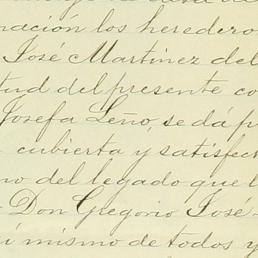 nación los heredero
José Martínez del
tud del presente co
Josefa Leño, se dá p
cubierta y satisfect
no del legado que l
Don Gregorio José
í mismo de todos y